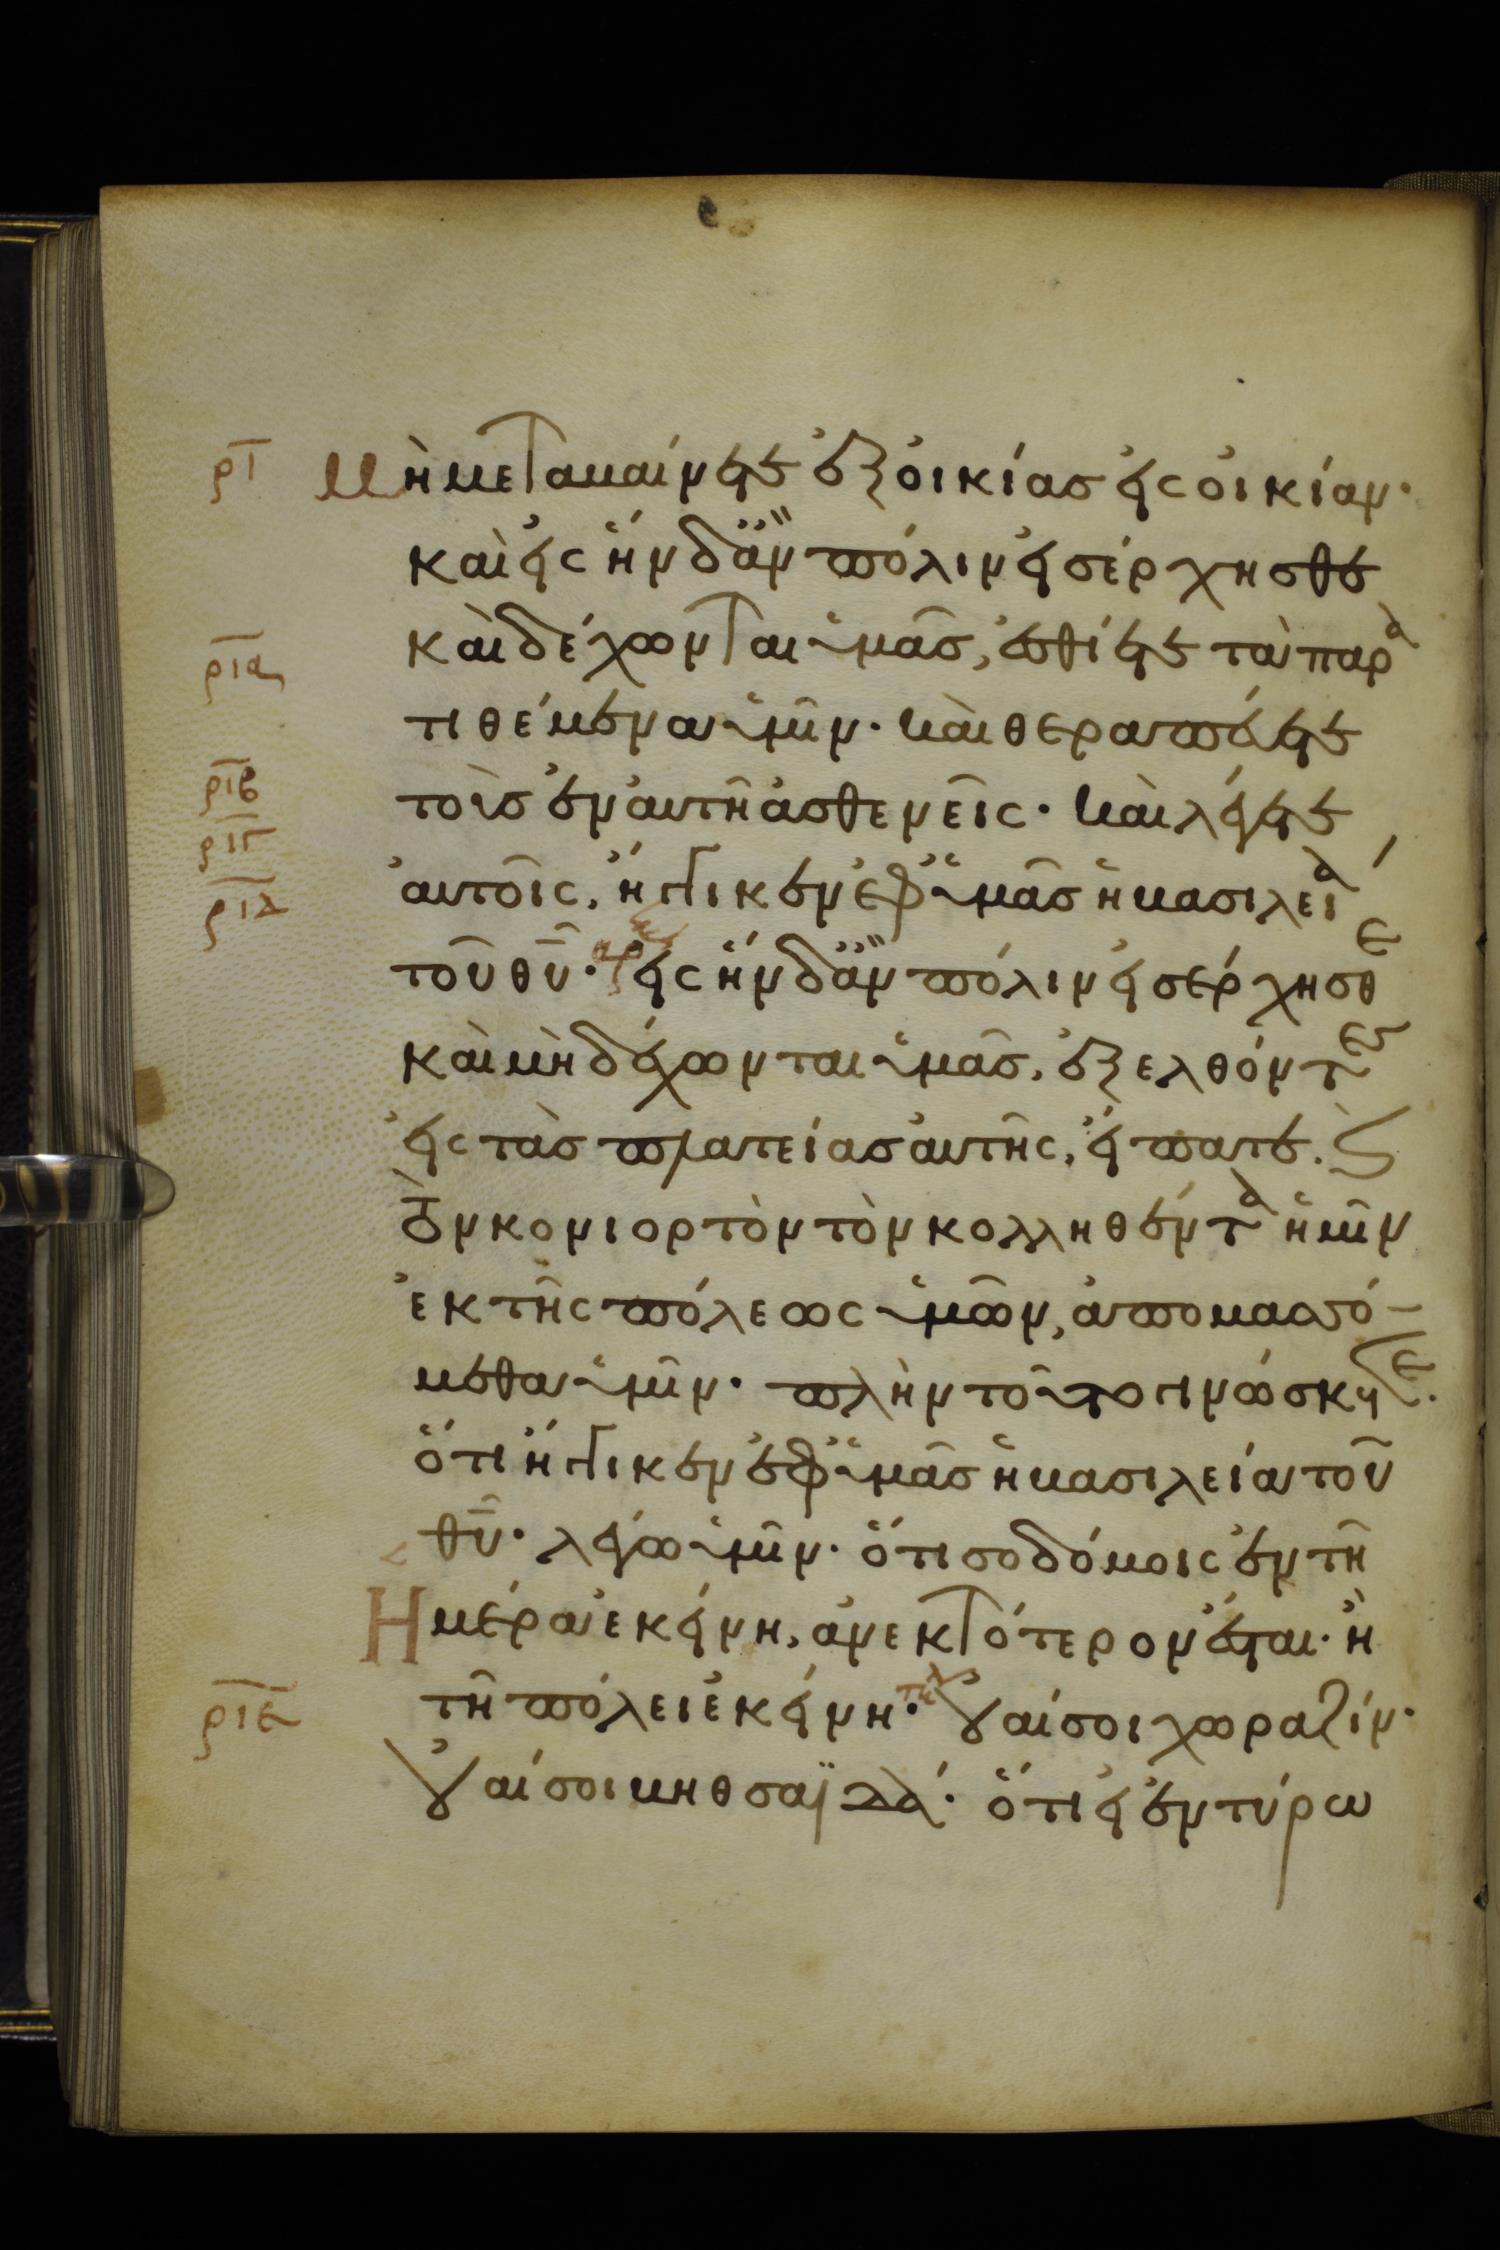 ρι Μὴ μεταβαίνετε ἐξ οἰκίασ εἰς οἰκίαν·
καὶ εἰς ἣν δ̈ἂν πόλιν εἰσέρχησθε
ρια καὶ δέχωνται ὑμᾶσ, ἐσθίετε τὰ παρα
τιθέμενα ὑμῖν· καὶ θεραπεύετε
ριβ τοὺσ ἐν αὐτῆ ἀσθενεῖς· καὶ λέγετε
ριγ
ριδ αὐτοῖς, ἤγγικεν ἐφ ὑμᾶσ ἡ βασιλεία
τοῦ θ̅υ̅· εἰς ἣν δ̈ἂν πόλιν εἰσέρχησθε
καὶ μὴ δέχωνται ὑμᾶσ, ἐξελθόντες
εἰς τὰσ πλατείασ αὐτῆς, εἴπατε.
Καὶ τὸν κονιορτὸν τὸν κολληθέντα ἡμῖν
ἐκ τῆς πόλεως ὑμῶν, ἀπομασσό-
μεθα ὑμῖν· πλὴν τοῦτο γινώσκετε.
ὅτι ἤγγικεν ἐφ ὑμᾶσ ἡ βασιλεία τοῦ
θ̅υ̅· λέγω ὑμῖν· ὅτι σοδόμοις ἐν τῆ
Ημέρα ἐκείνη, ἀνεκτότερον ἔσται· ἢ
ριε τῆ πόλει ἐκείνη· οὐαί σοι χωραζίν·
οὐαί σοι βηθσαϊδά· ὅτι εἰ ἐν τύρω